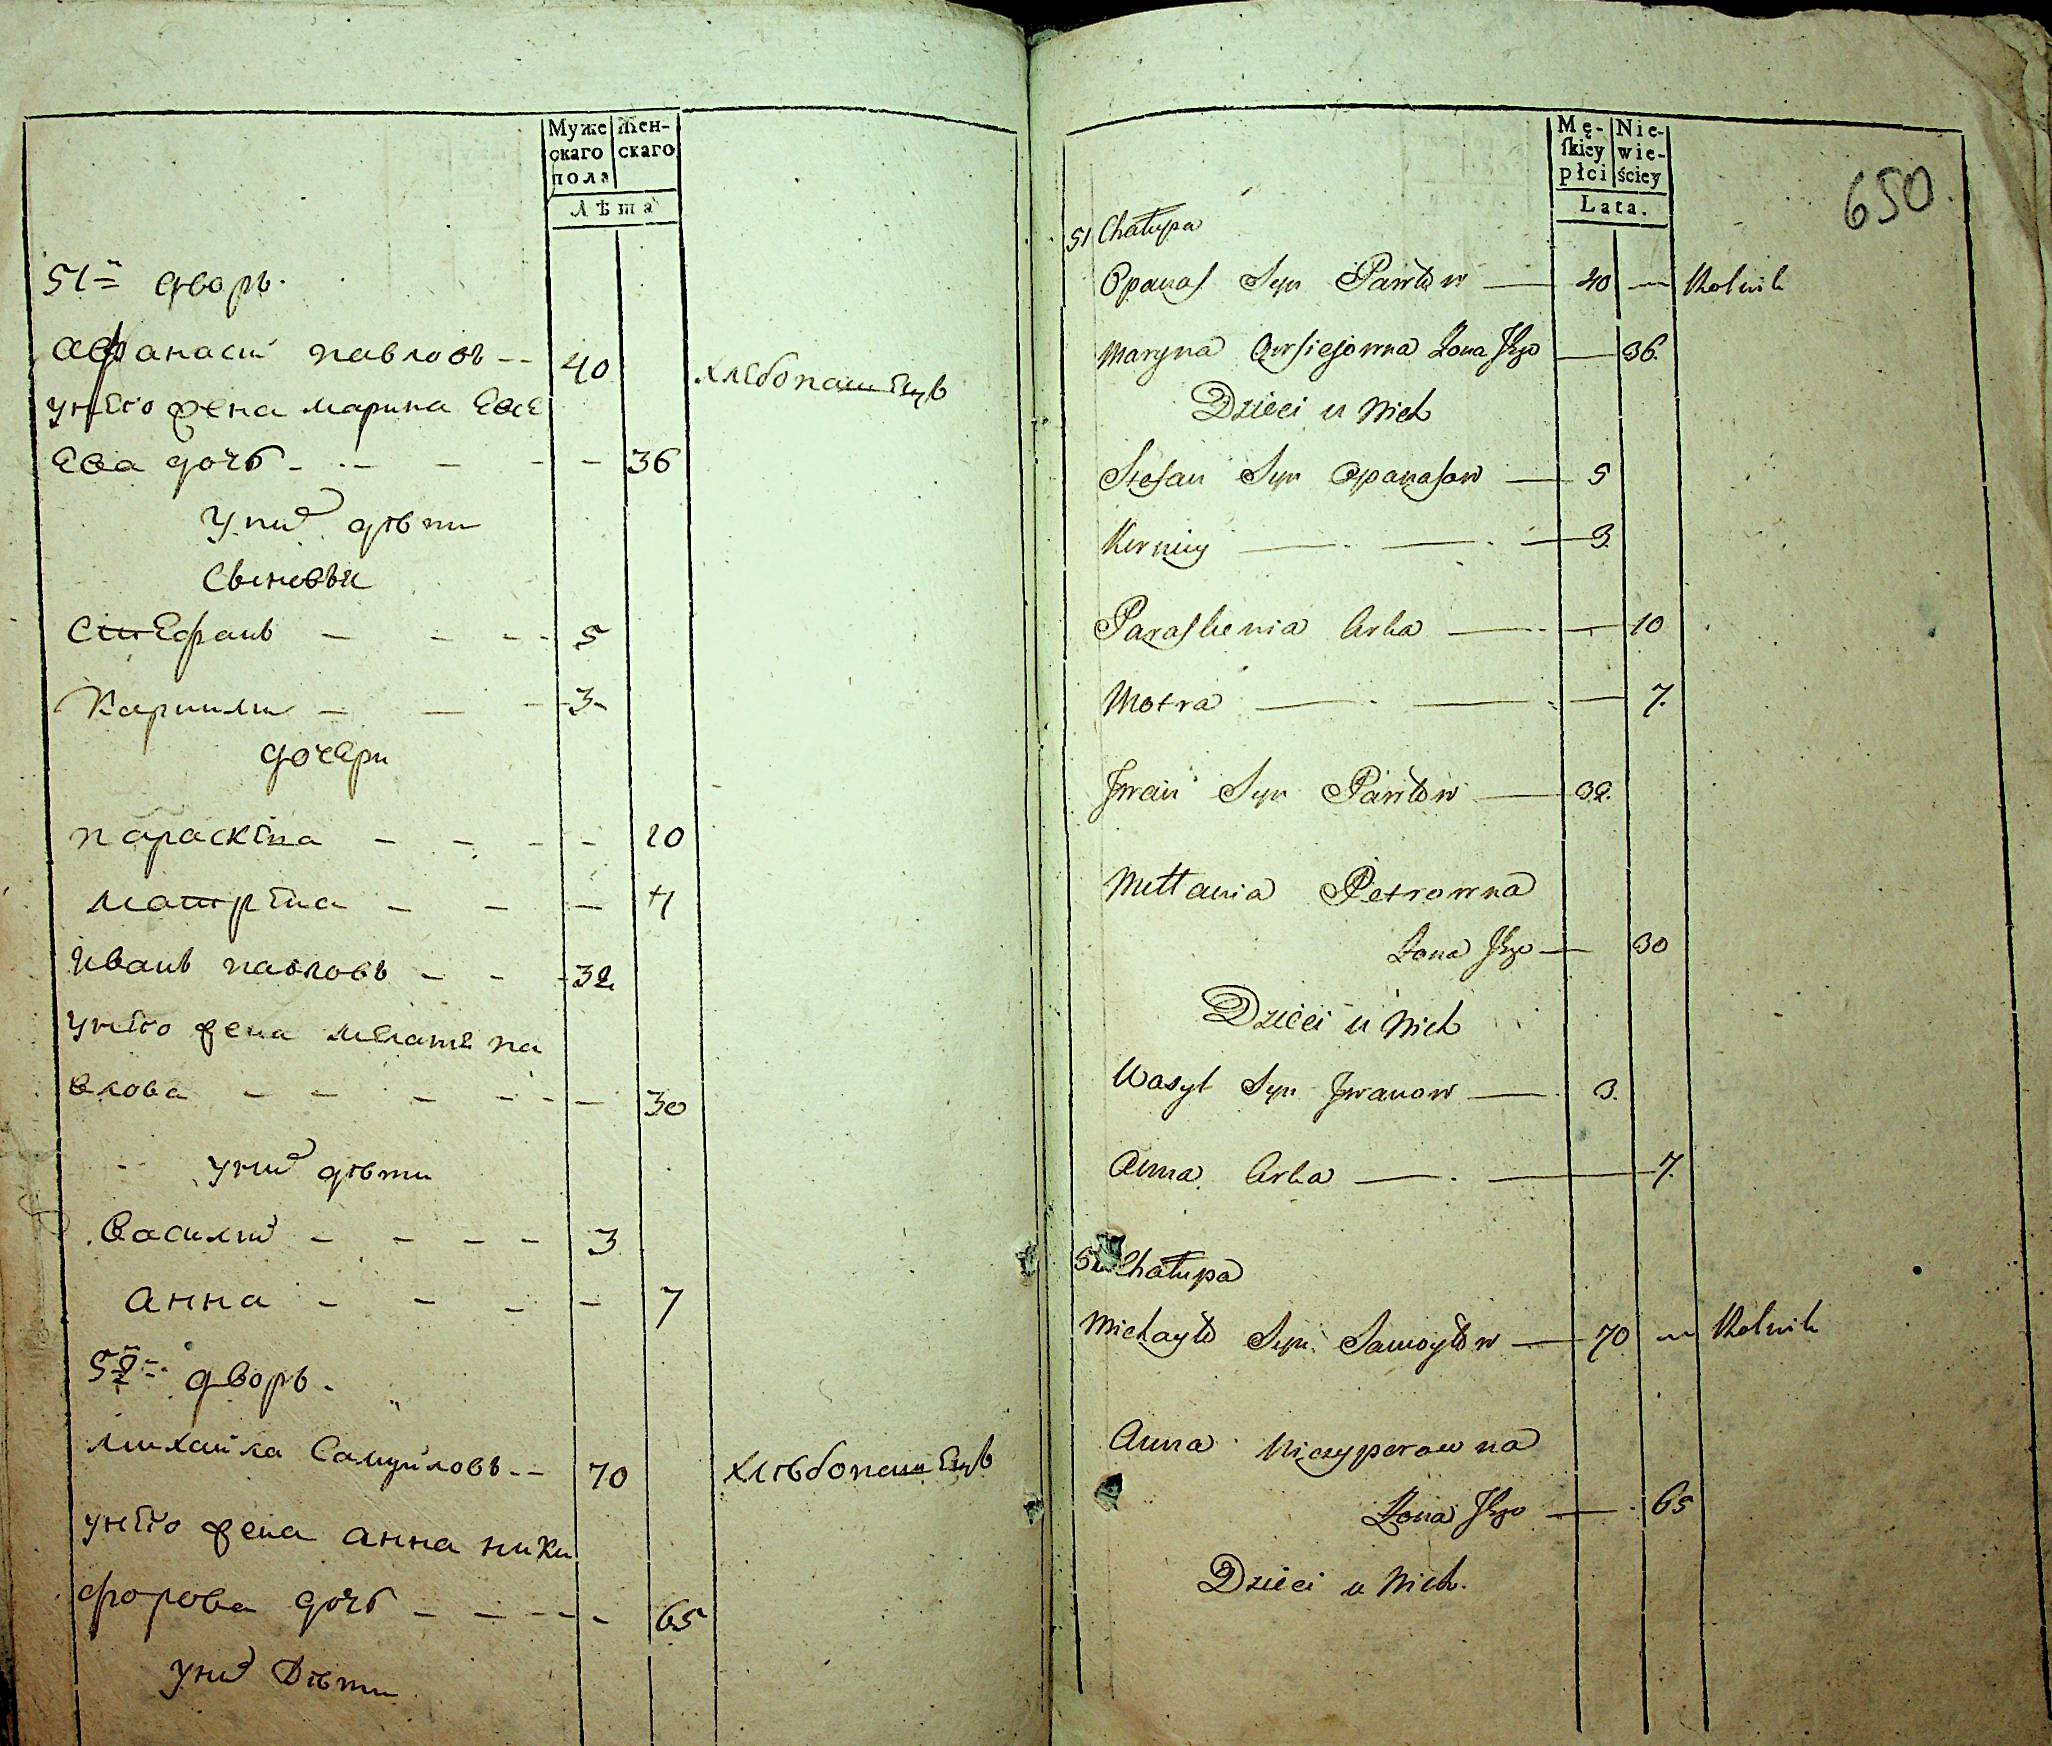 Муже
скаго
пола
Жен-
скаго
Лѣта
51й дворъ.
Афанасий павловъ -- 40 хлебопашецъ
у него жена марина Евсе
Ева дочь - - - - - 36
у них дѣти
Сыновьи
Стефанъ - - - - 5
Карнилий - - - 3
дочери
параскева - - - - 10
матрена - - - 7
Иванъ павловъ - - - 32
у него жена мелания па
влова - - - - - 30
у них дѣти
Василий - - - - 3
анна - - - - 7
52й дворъ.
михайла Самуйловъ -- 70 хлѣбопашецъ
у него жена анна ники
форова дочь - - - - - 65
у них Дѣти
650.
Mę-
skiey
płci
Nie-
wie-
ściey
Lata.
51 Chałupa
Opanas Syn Pawłow — 40 — Rolnik
Maryna Awsiejowna Żona Jego — 36.
Dzieci u Nich
Stefan Syn Opanasow — 5
Korniey — . — . — 3.
Paraskewia Corka — . — 10
Motra — . — . — 7.
Jwan Syn Pawłow — 32.
Mełania Petrowna
Żona Jego — 30
Dzieci u Nich
Wasyl Syn Jwanow — 3.
Anna Corka — . — 7.
52 Chałupa
Michayło Syn Samoyłow — 70 — Rolnik
Anna Niczyperowna
Żona Jego — 65
Dzieci u Nich.